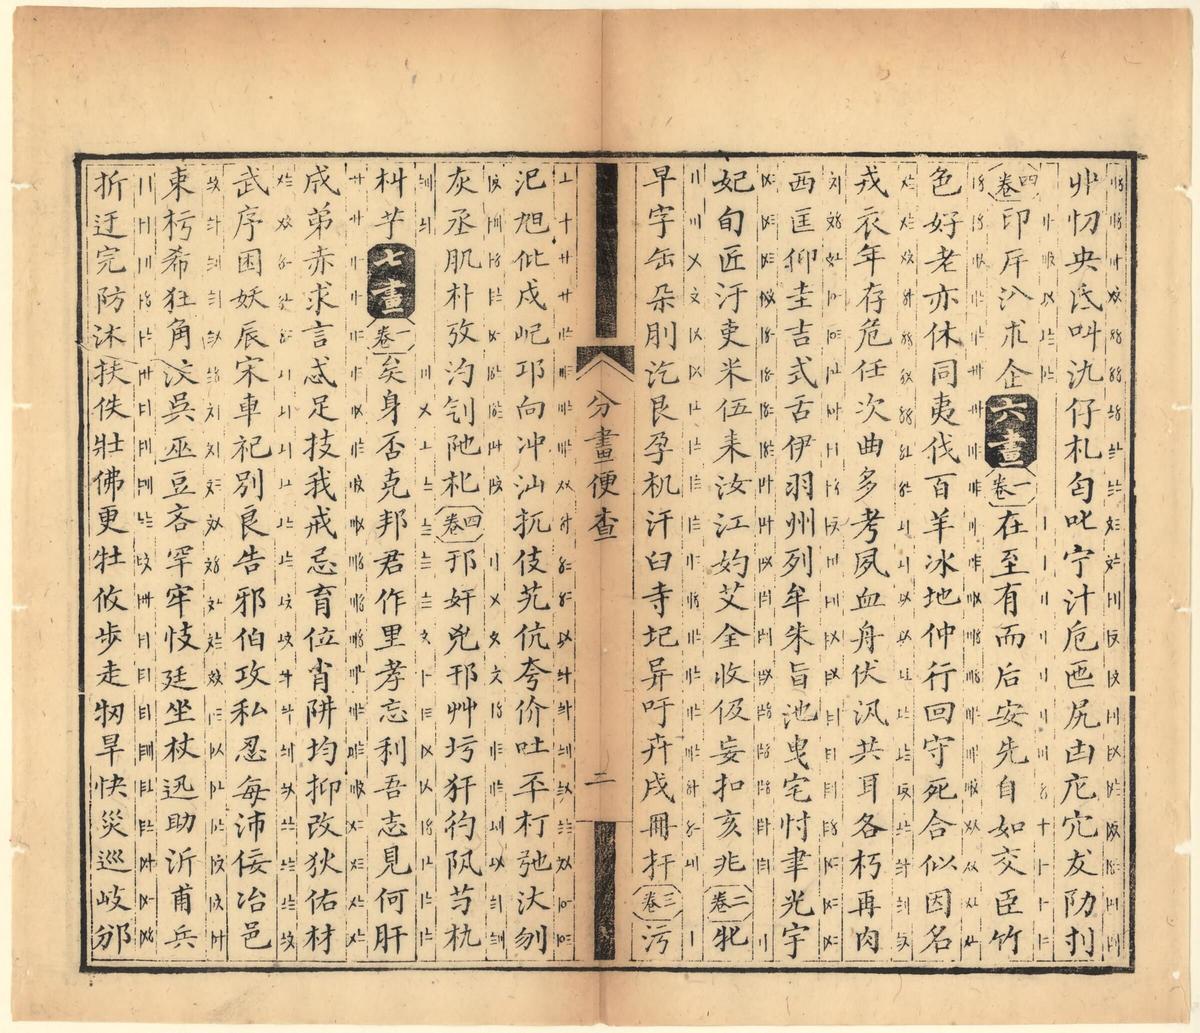 丱忉央氐叫氿仔札匄叱宁汁卮匜尻凷庀宂犮阞刌
四卷印厈汃朮企六畫一卷在至有而后安先自如交臣竹
色好老亦休同夷伐百羊冰地仲行回守死合似因名
戎衣年存危任次曲多考夙血舟伏汎共耳各朽再肉
西匡仰圭吉式舌伊羽州列牟朱旨池曳宅忖聿光宇
妃旬匠汙吏米伍耒汝江妁艾全收伋妄扣亥兆二卷牝
早字缶朵刖汔艮孕机汗臼寺圮异吁卉戌冊扞三卷污
分畫便查
二
汜旭仳戍屺邛向冲汕扤伎艽伉夸价吐丕朾弛汏刎
灰丞肌朴攷汋刉阤朼四卷邗奸兇邘艸圬犴彴阠芍朹
朻芓七畫一卷矣身否克邦君作里孝忘利吾志見何肝
成弟赤求言忒足技我戒忌育位肖阱均抑改狄佑材
武序困妖辰宋車祀別良告邪伯攻私忍每沛佞冶邑
束杇希狂角汶吳巫豆吝罕牢忮廷坐杖迅助沂甫兵
折迋完防沐扶佚壯佛更牡攸步走牣旱快災巡岐邠